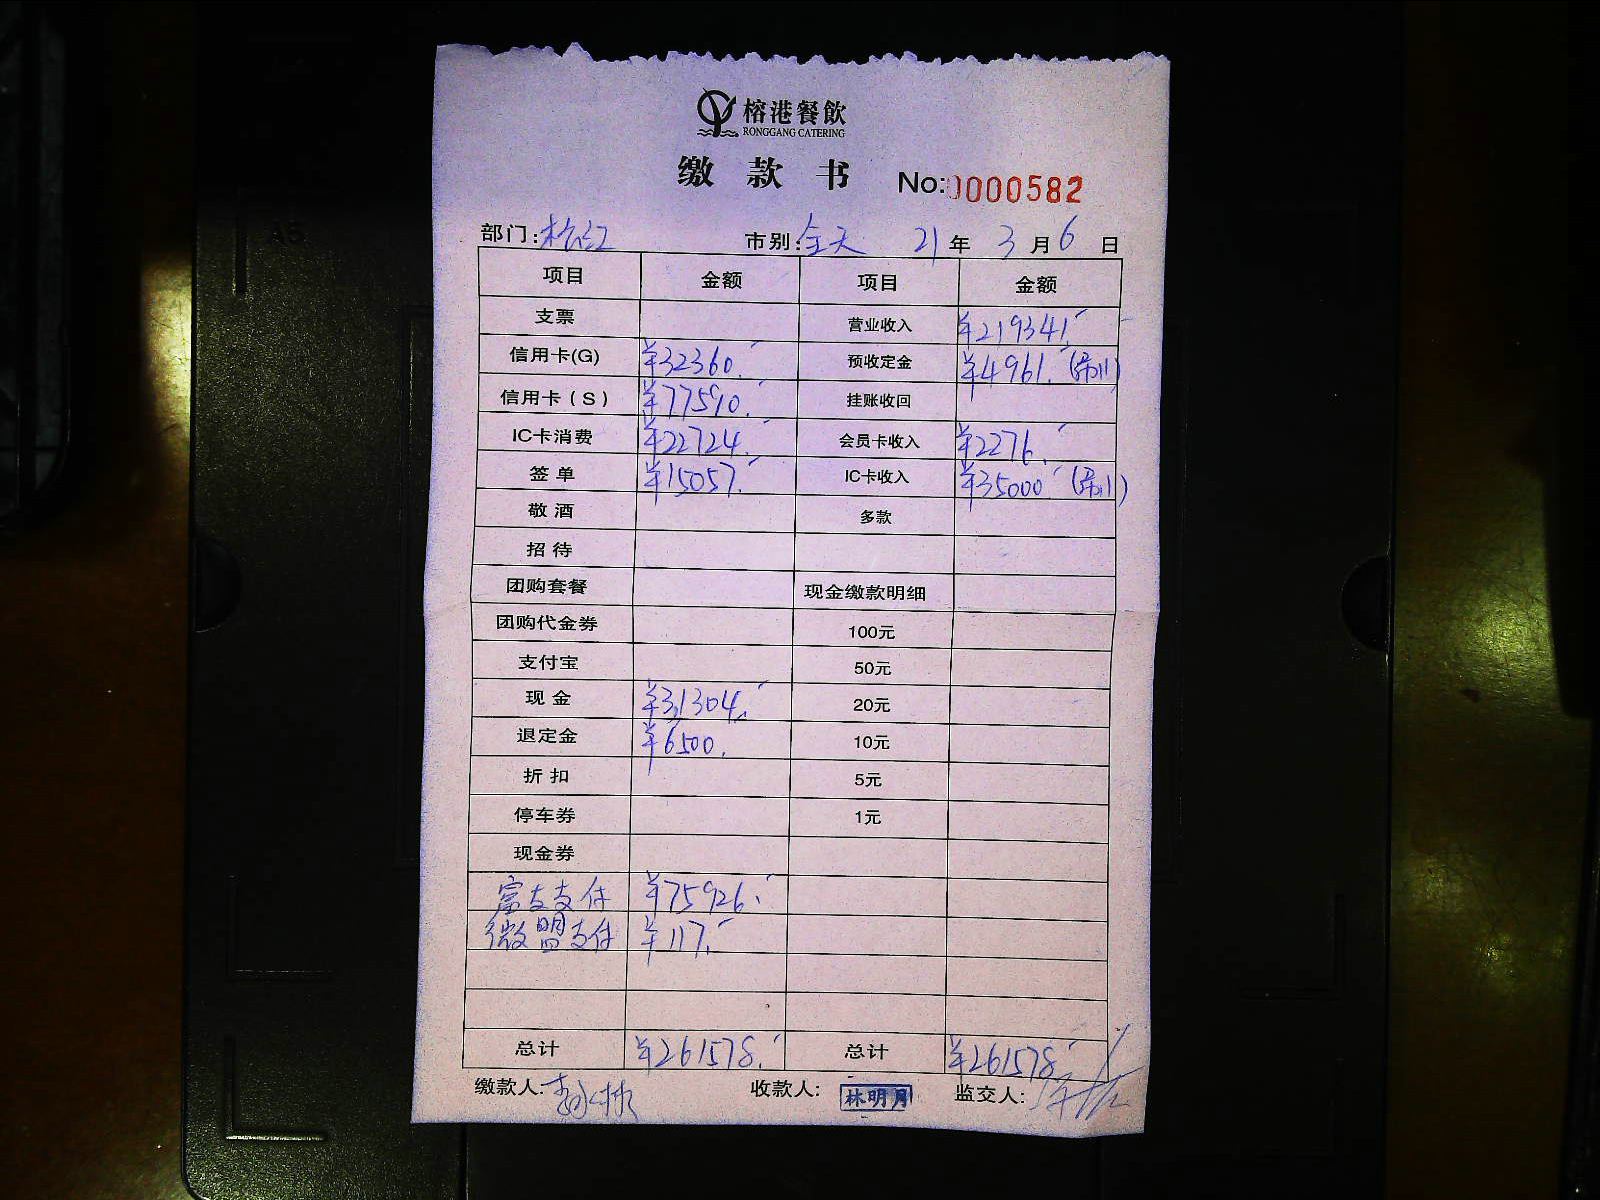 榕港餐飲
RONGGANG CATERING
缴款书 No:0000582
部门:松江 市别:全天 21年3月6日
项目 金额 项目 金额
支票 营业收入 ¥219341.
信用卡(G) ¥32360. 预收定金 ¥4961.
信用卡(S) ¥77590. 挂账收回
IC卡消费 ¥22724. 会员卡收入 ¥2276.
签单 ¥15057. IC卡收入 ¥35000
敬酒 多款
招待
团购套餐 现金缴款明细
团购代金券 100元
支付宝 50元
现金 ¥31304. 20元
退定金 ¥6500. 10元
折扣 5元
停车券 1元
现金券
富友支付 ¥75926.
微盟支付 ¥117.
总计 ¥261578. 总计 ¥261578
缴款人: 收款人: 林明月 监交人: